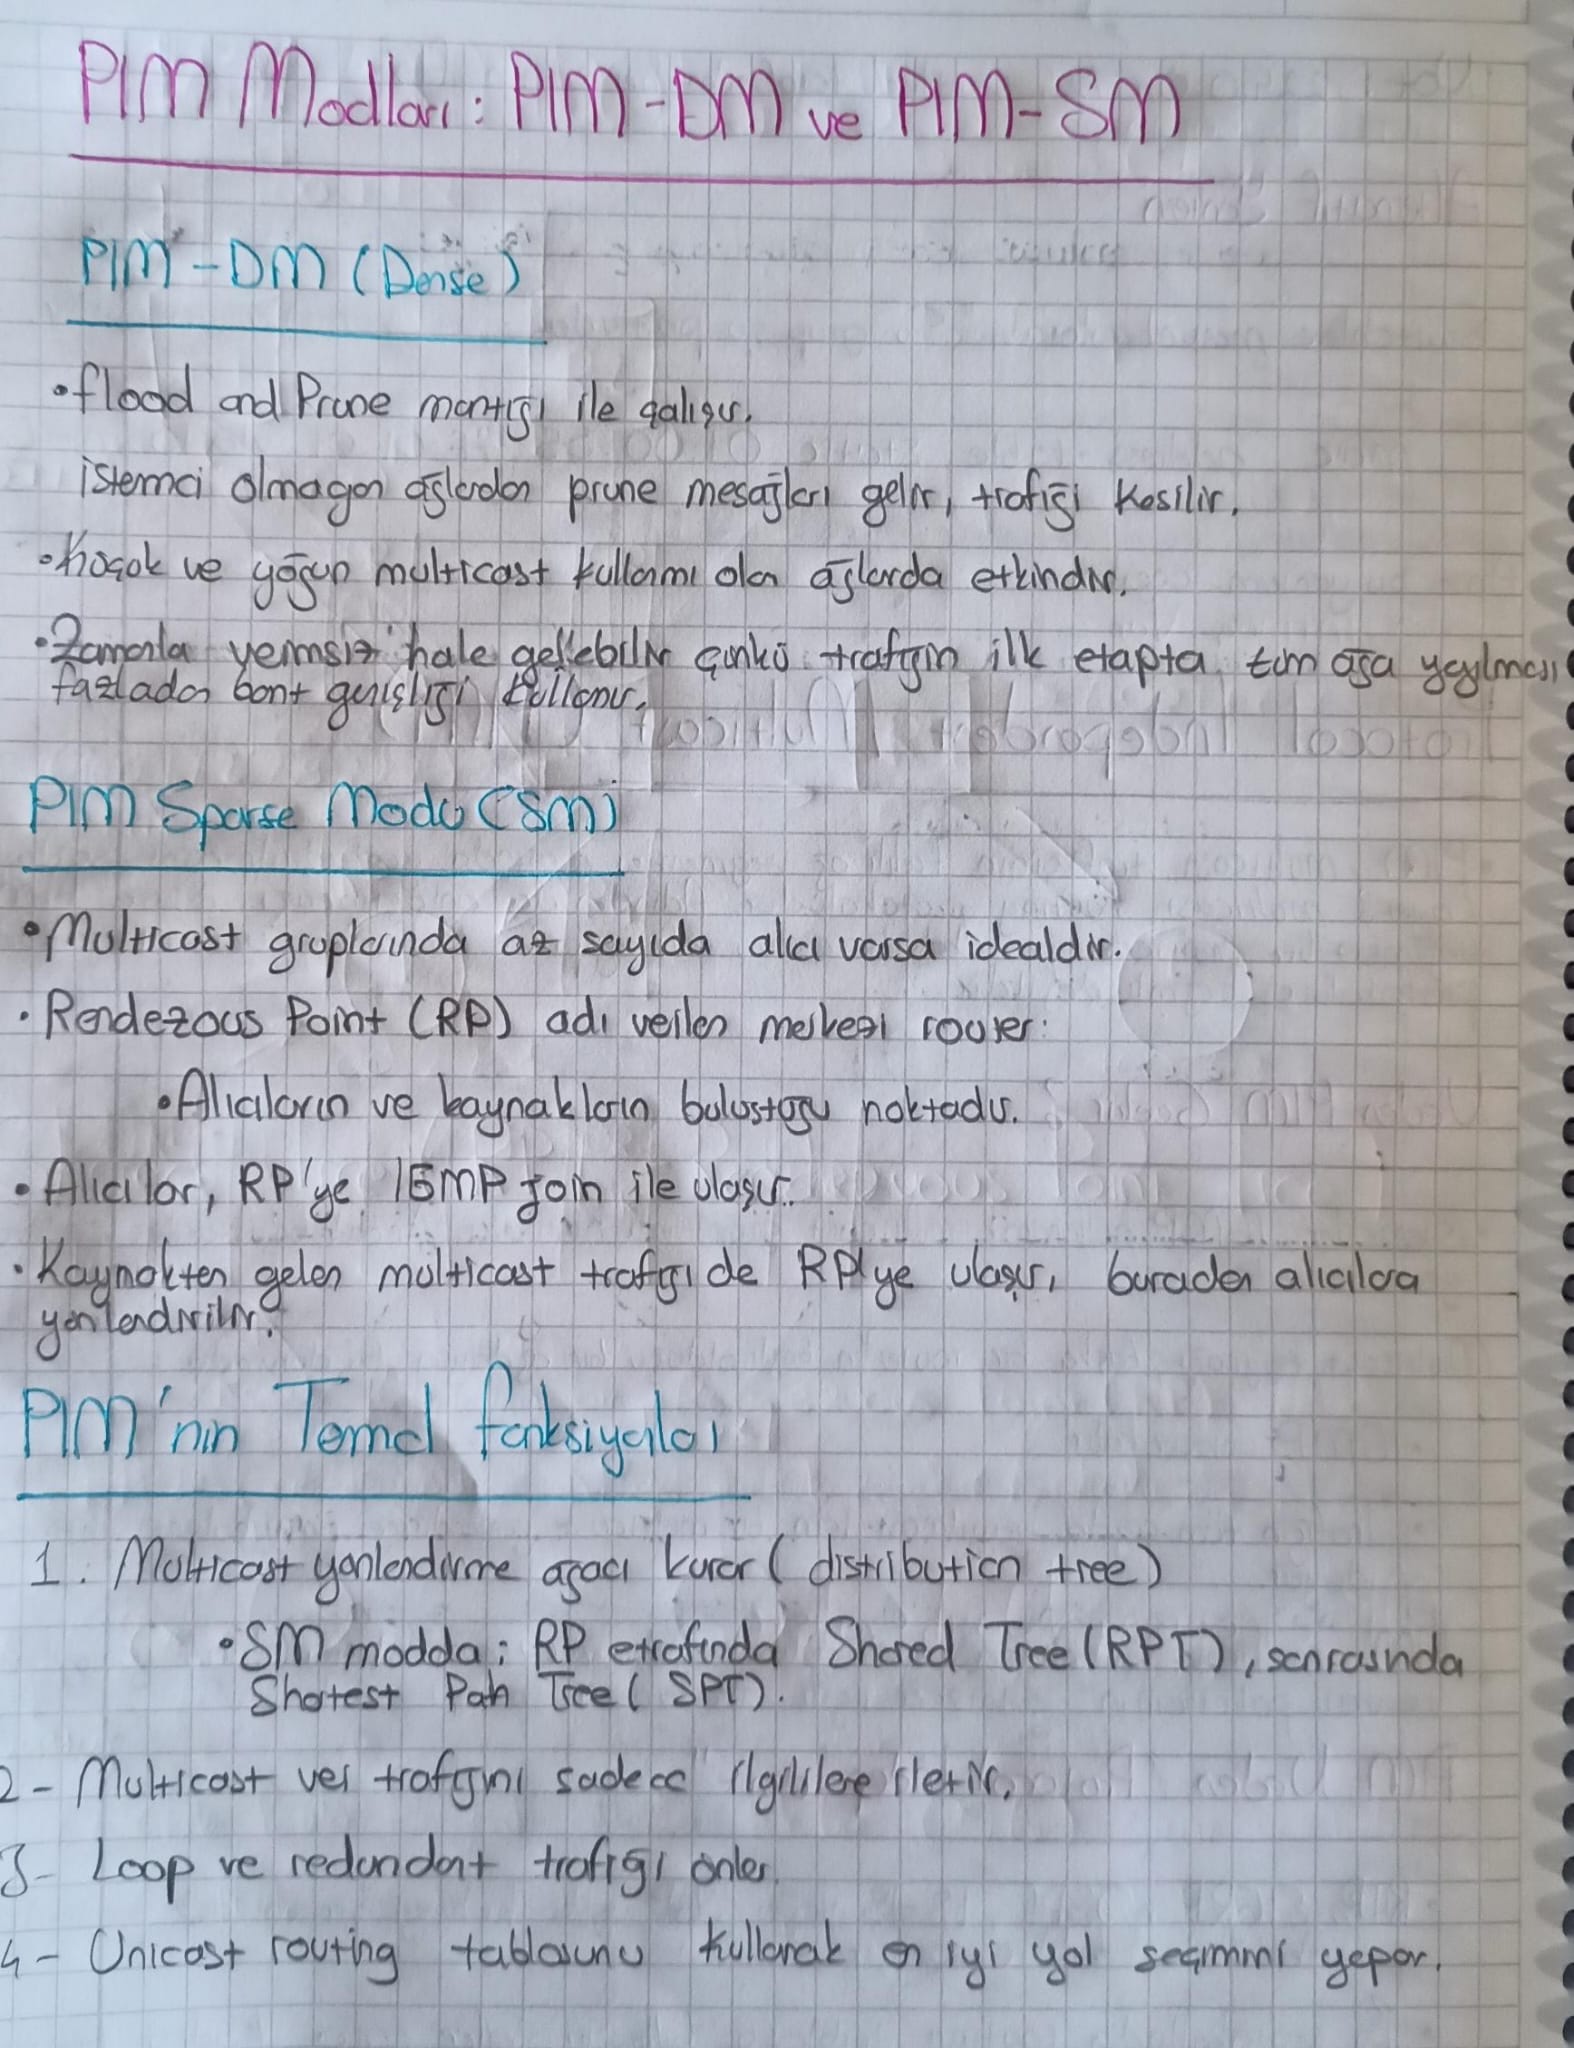 PIM Modları: PIM-DM ve PIM-SM
PIM-DM (Dense)
•flood and Prune mantığı ile çalışır.
istemci olmayan ağlardan prune mesajları gelir, trafiği kesilir.
•Küçük ve yoğun multicast kullanımı olan ağlarda etkindir.
•Zamanla verimsiz hale gelebilir çünkü trafiğin ilk etapta tüm ağa yayılması
fazladan bant genişliği kullanır.
PIM Sparse Modu (SM)
•Multicast gruplarında az sayıda alıcı varsa idealdir.
•Rendezous Point (RP) adı verilen merkezi router:
•Alıcıların ve kaynakların buluştuğu noktadır.
•Alıcılar, RP'ye IGMP join ile ulaşır.
•Kaynakten gelen multicast trafiği de RP'ye ulaşır, buradan alıcılara
yönlendirilir.
PIM'nın Temel fonksiyonları
1. Multicast yönlendirme ağacı kurar (distribution tree)
•SM modda; RP etrafında Shared Tree (RPT), sonrasında
Shotest Pah Tree (SPT).
2- Multicast veri trafiğini sadece ilgililere iletir.
3- Loop ve redundant trafiği önler.
4- Unicast routing tablosunu kullanarak en iyi yol seçimini yapar.